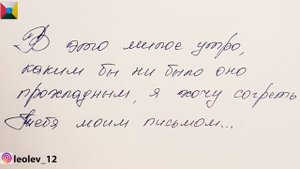 В это милое утро,
каким бы ни было оно
прохладным, я хочу согреть
тебя моим письмом...
leolev_12